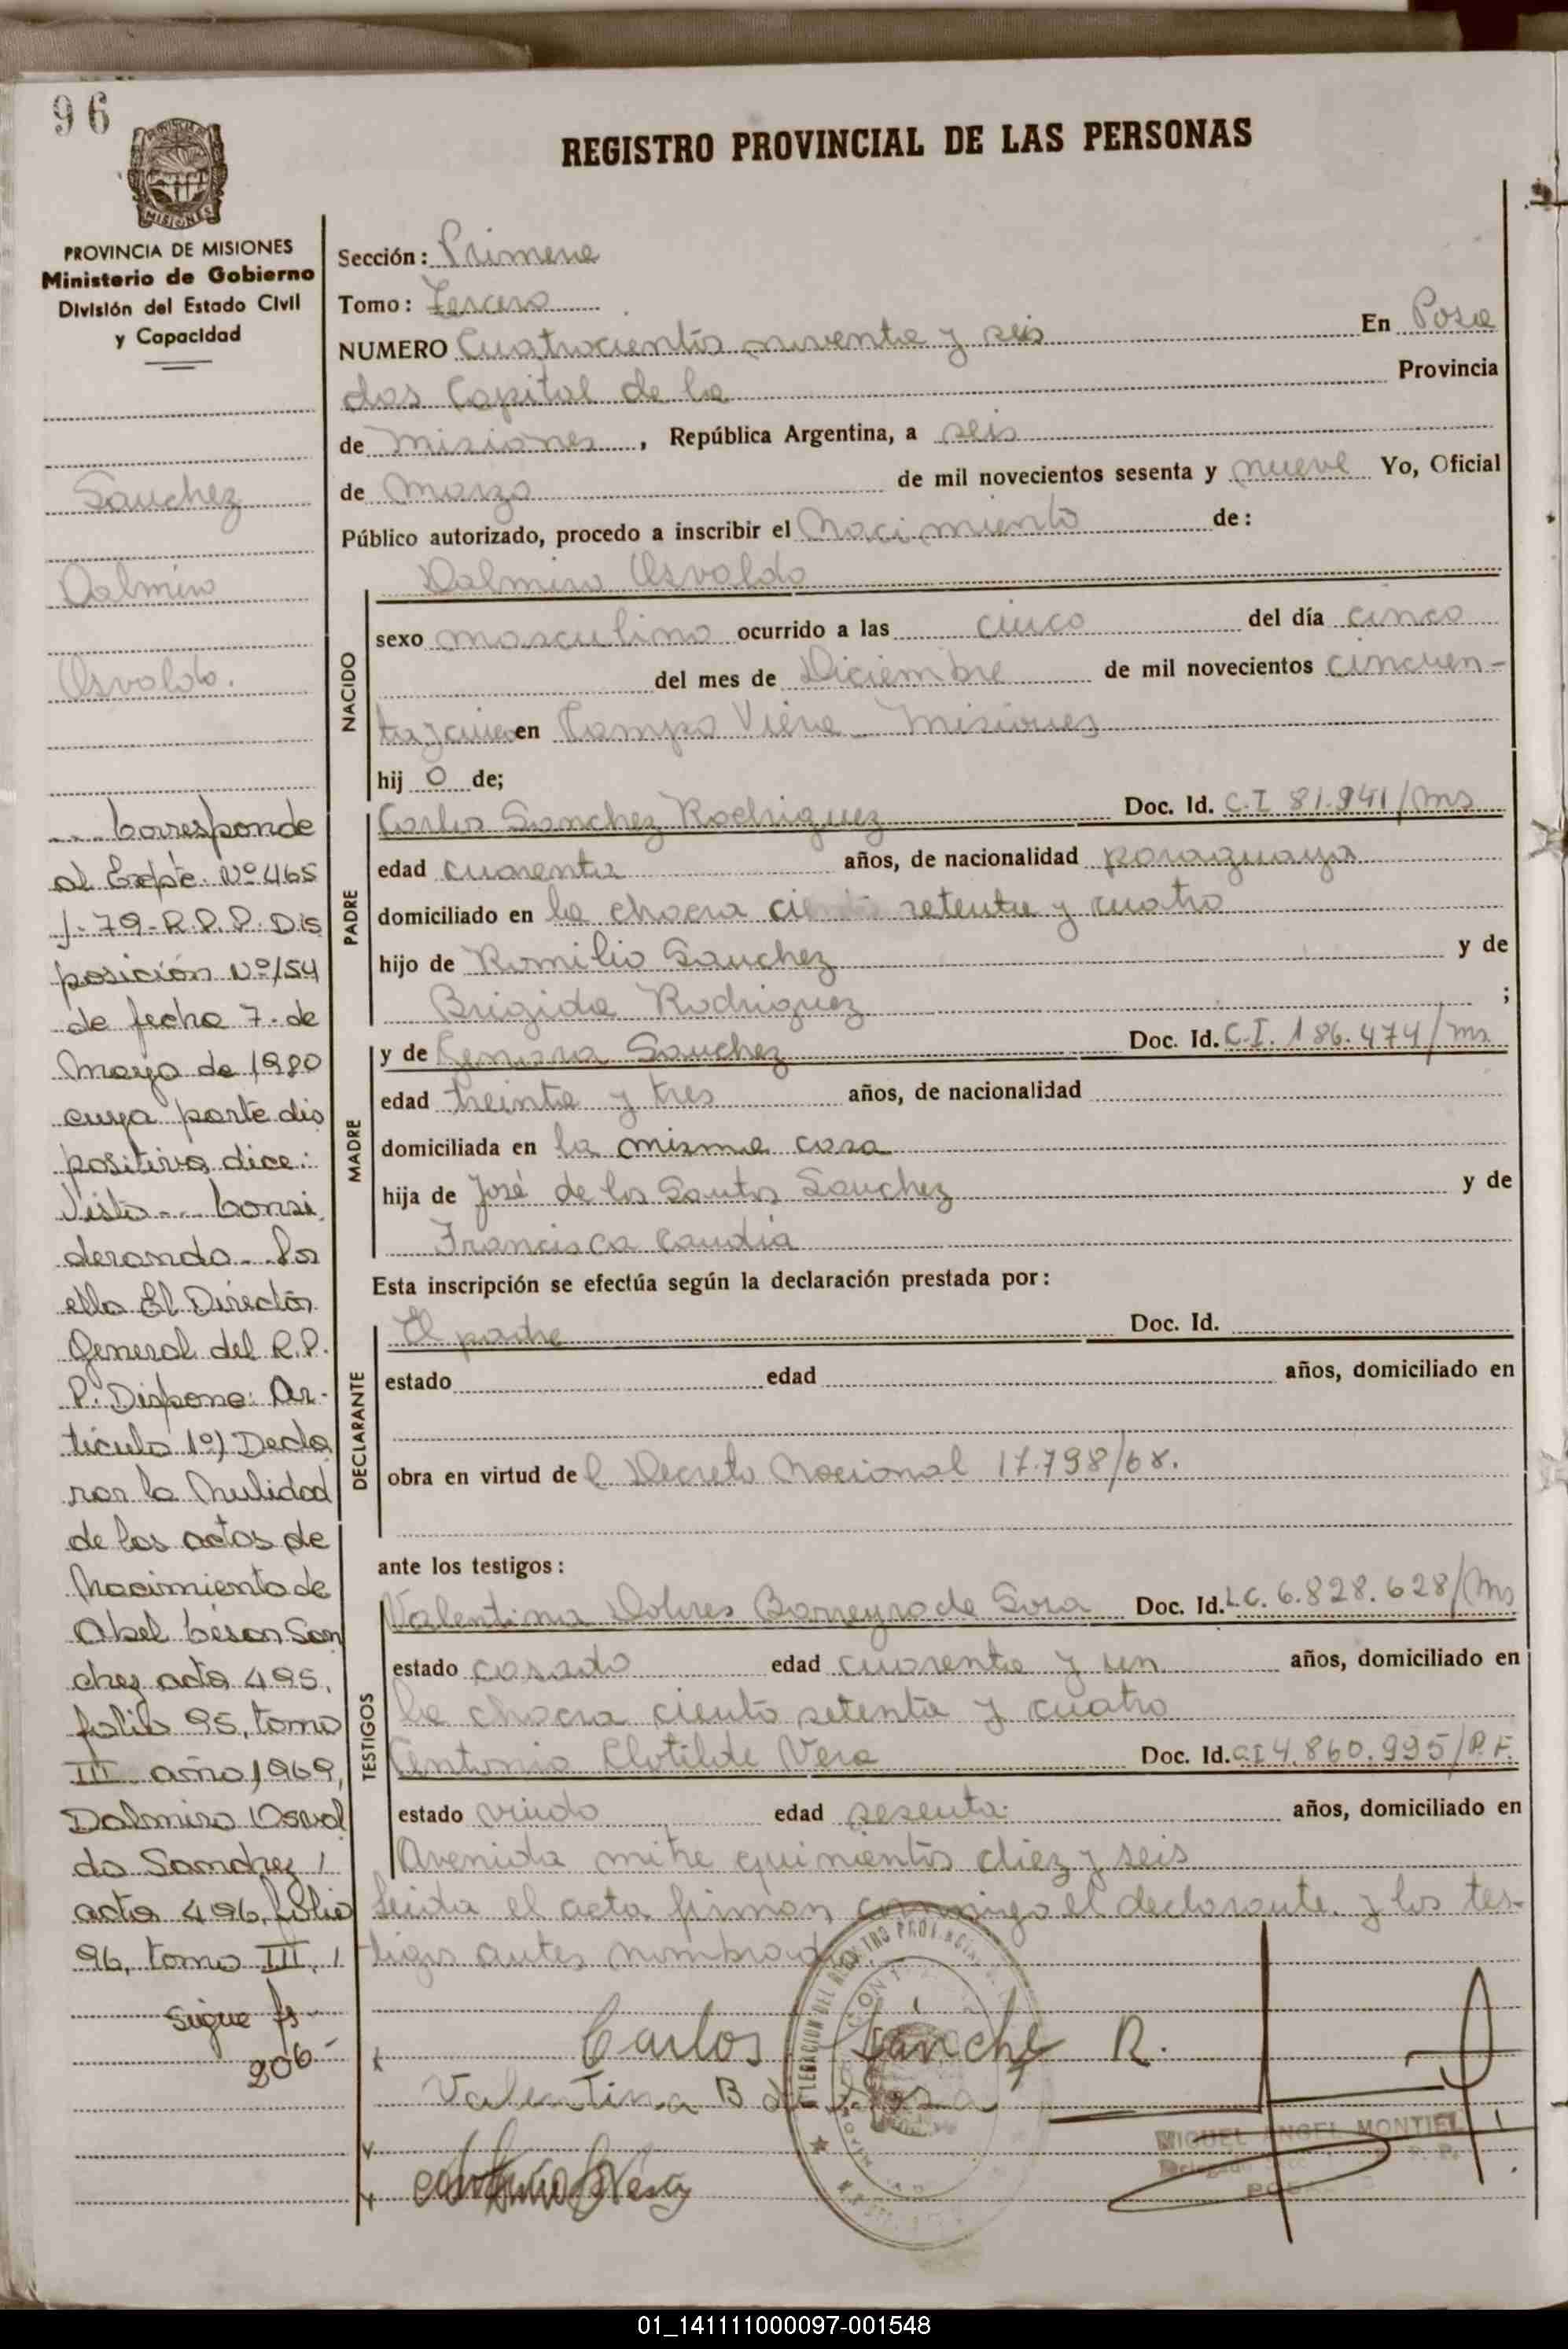 96
REGISTRO PROVINCIAL DE LAS PERSONAS
MISIONES
PROVINCIA DE MISIONES
Ministerio de Gobierno
División del Estado Civil
y Capacidad
Sanchez
Dalmiro
Osvaldo.
... Corresponde
al Expte. Nº 465
J-79-R.P.P. Dis
posición Nº 154
de fecha 7. de
Mayo de 1980
cuya parte dis
positiva dice:
Visto... Consi
derando... Por
ello El Director
General del R.P.
P. Dispone: Ar-
tículo 1º) Decla
rar la Nulidad
de los actos de
Nacimiento de
Abel Cesar San
chez acta 495,
folio 95, tomo
III año 1969,
Dalmiro Osval
do Sanchez,
acta 496, folio
96, tomo III,
Sigue fs
206
Sección: Primera
Tomo: Tercero
NUMERO Cuatrocientos noventa y seis En Posa
das Capital de la Provincia
de Misiones, República Argentina, a seis
de Marzo de mil novecientos sesenta y nueve Yo, Oficial
Público autorizado, procedo a inscribir el Nacimiento de:
Dalmiro Osvaldo
NACIDO
sexo masculino ocurrido a las cinco del día cinco
del mes de Diciembre de mil novecientos cincuen-
ta y cinco en Campo Viera Misiones
hij o de;
PADRE
Carlos Sanchez Rodriguez Doc. Id. C.I 81.941/Ms
edad cuarenta años, de nacionalidad paraguaya
domiciliado en la chacra ciento setenta y cuatro
hijo de Romilio Sanchez y de
Brigida Rodriguez ;
MADRE
y de Genara Sanchez Doc. Id. C.I. 186.474/Ms
edad treinta y tres años, de nacionalidad
domiciliada en la misma casa
hija de José de los Santos Sanchez y de
Francisca Candia
Esta inscripción se efectúa según la declaración prestada por:
DECLARANTE
El padre Doc. Id.
estado edad años, domiciliado en
obra en virtud de l Decreto Nacional 17.798/68.
ante los testigos:
TESTIGOS
Valentina Dolores Barreyro de Sosa Doc. Id. L.C. 6.828.628/Ms
estado casado edad cuarenta y un años, domiciliado en
la chacra ciento setenta y cuatro
Antonio Clotilde Vera Doc. Id. C.I 4.860.995/P.F.
estado viudo edad sesenta. años, domiciliado en
Avenida mitre quinientos diez y seis
Leida el acta firman conmigo el declarante y los tes-
tigos antes nombrados.
Carlos Sánchez R.
Valentina B de Sosa
Antonio Vera
MIGUEL ANGEL MONTIEL
01_141111000097-001548